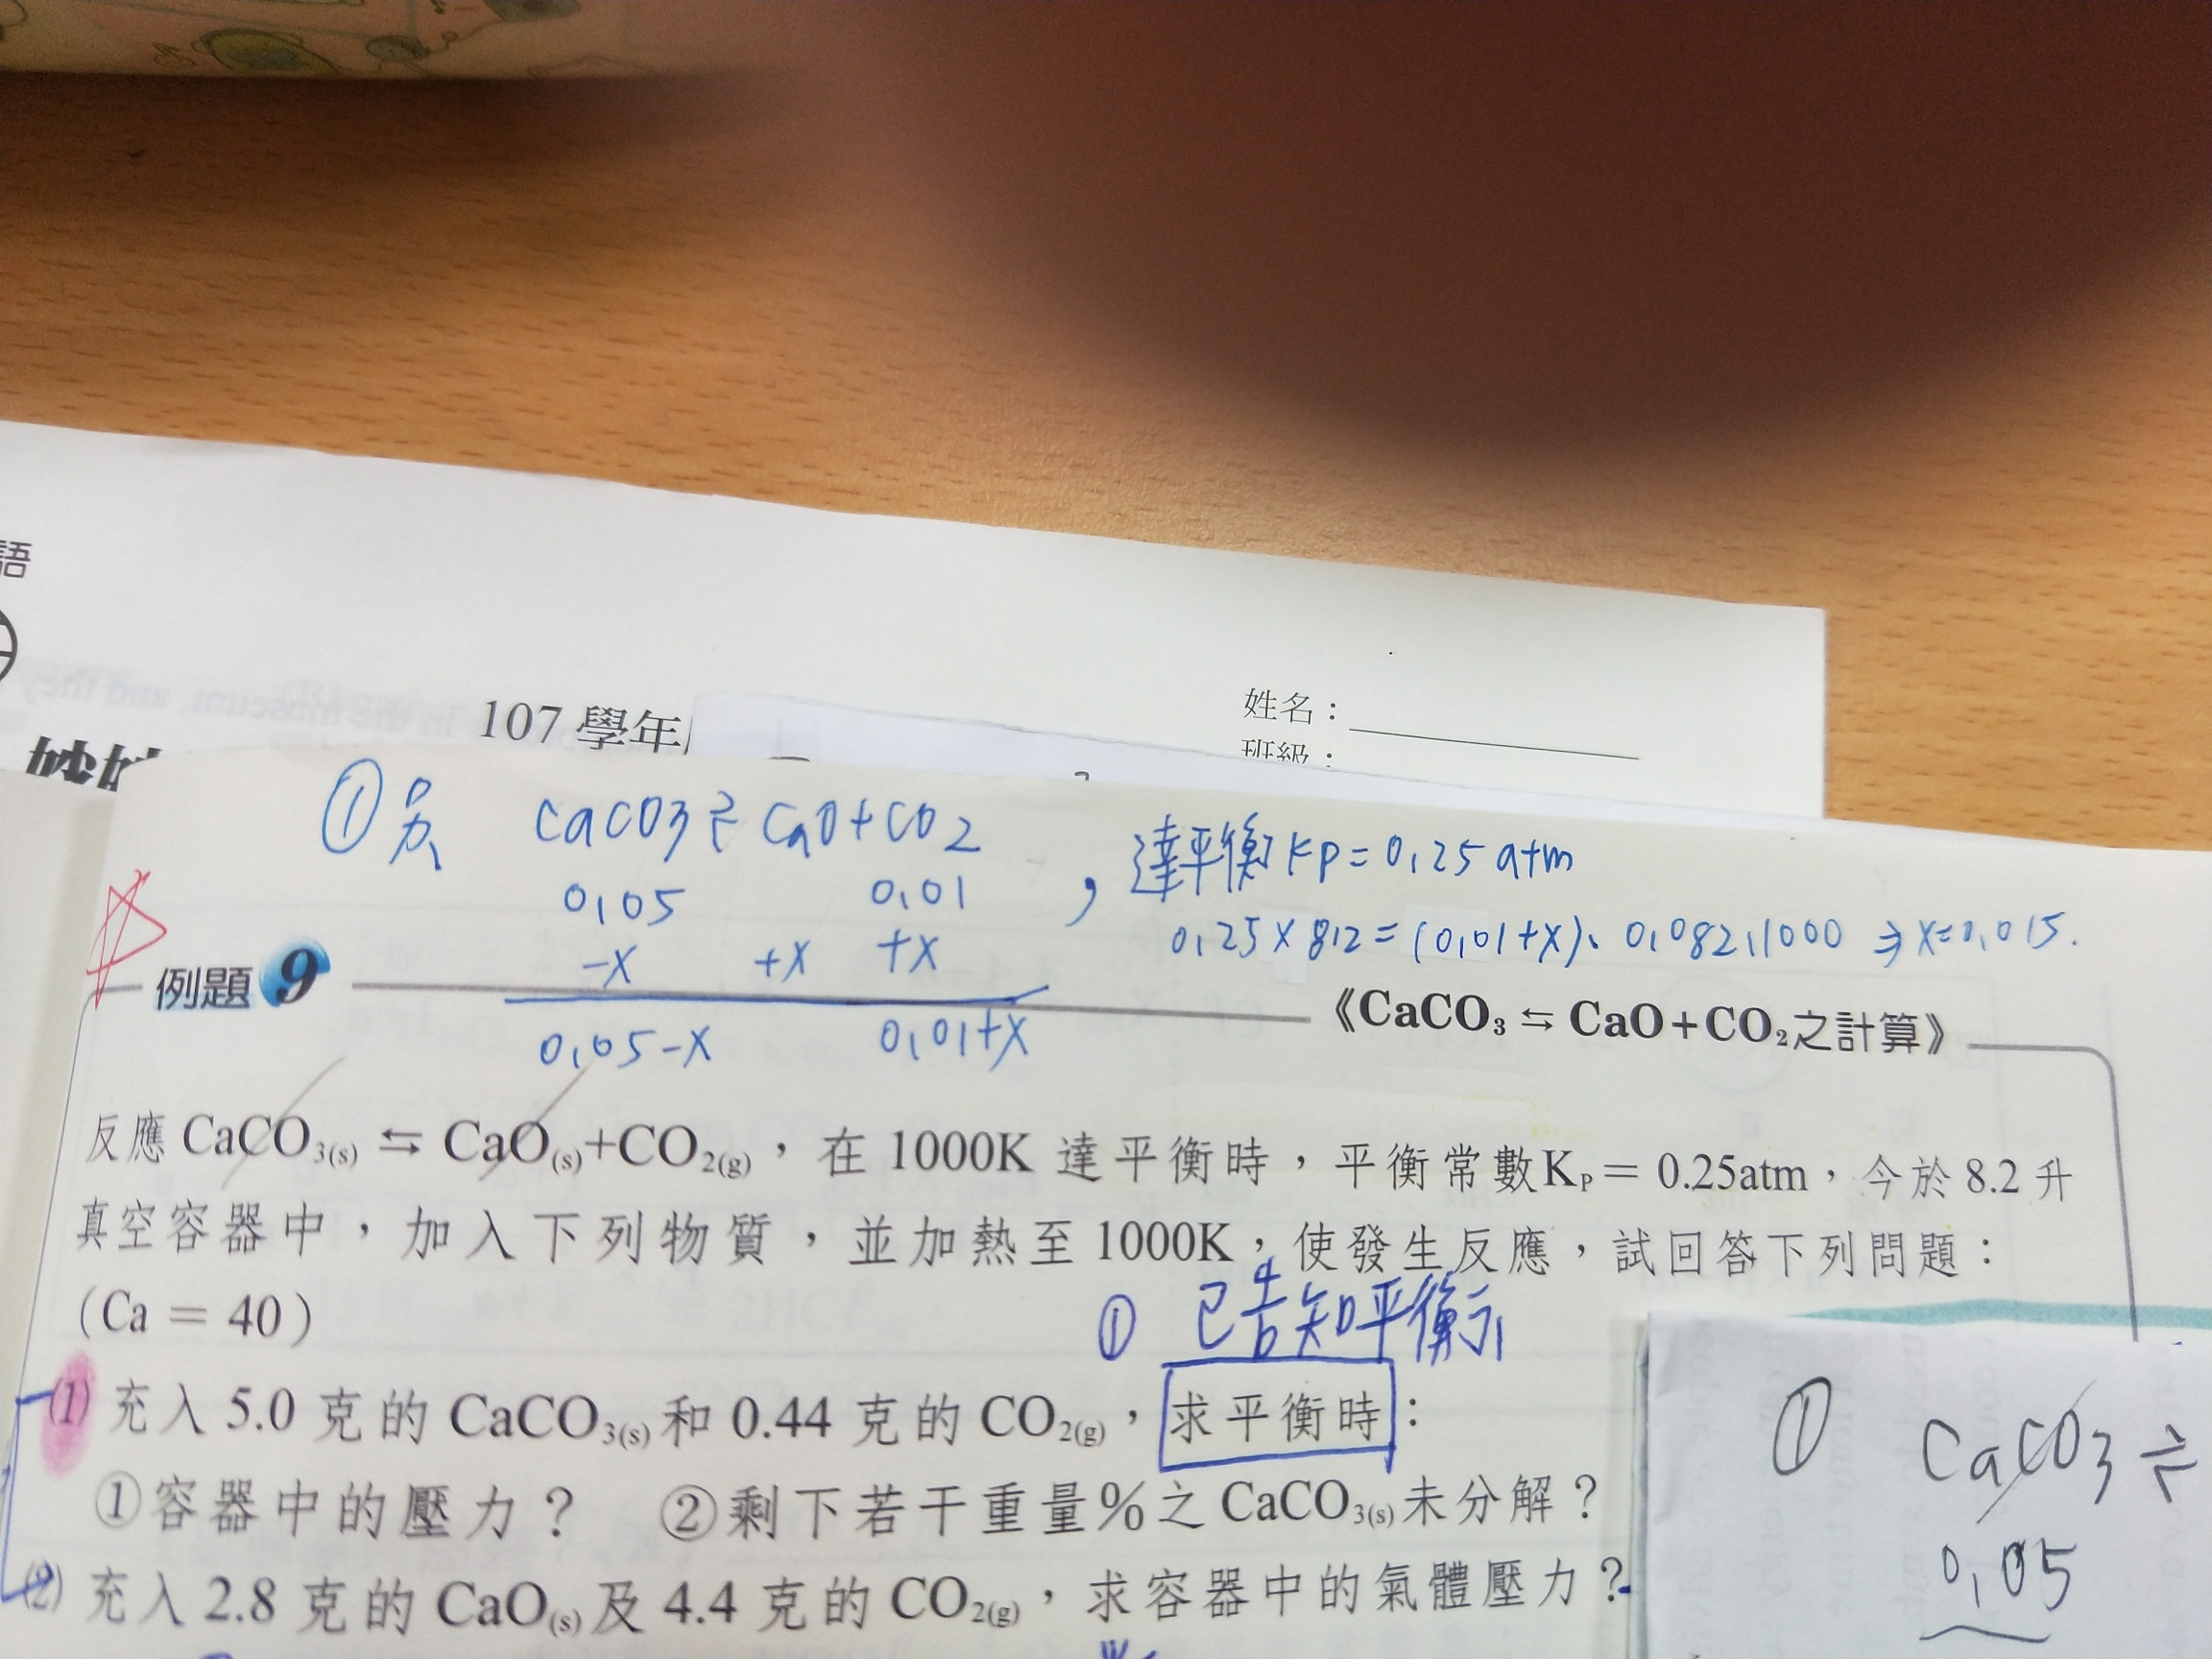 語
107 學年
姓名：
班級：
① 另 CaCO3 ⇌ CaO + CO2 ，達平衡 KP = 0.25 atm
0.05 0.01
0.25 × 8.2 = (0.01+x)、0.082.1000 ⇒ x=0.015.
-x +x +x
0.05-x 0.01+x
例題 9 《CaCO₃ ⇆ CaO+CO₂之計算》
反應 CaCO₃(s) ⇆ CaO(s)+CO₂(g)，在 1000K 達平衡時，平衡常數KP = 0.25atm，今於 8.2 升
真空容器中，加入下列物質，並加熱至 1000K，使發生反應，試回答下列問題：
(Ca = 40)
① 已告知平衡
(1) 充入 5.0 克的 CaCO₃(s)和 0.44 克的 CO₂(g)，求平衡時：
①容器中的壓力？ ②剩下若干重量%之 CaCO₃(s)未分解？
(2) 充入 2.8 克的 CaO(s)及 4.4 克的 CO₂(g)，求容器中的氣體壓力？
① CaCO3 ⇌
0.05